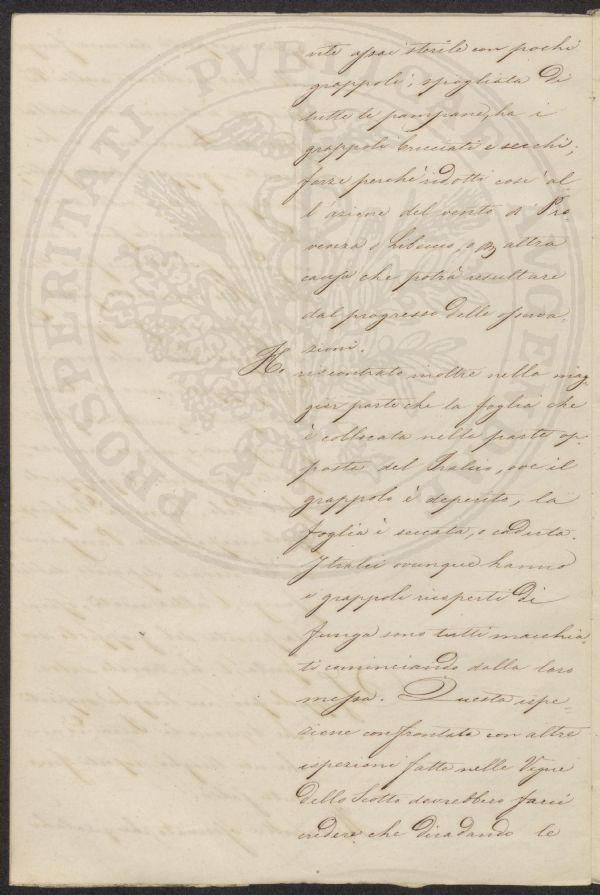 vite assai sterile con pochi
grappoli, spogliata di
tutte le pampane, ha i
grappoli bruciati e secchi;
forze perchè ridotti così al
l'azione del vento di Pro
venza o Libeccio, o altra
causa che potrà resultare
dal progresso delle osserva-
zioni.
Ho riscontrato inoltre nella mag
gior parte che la foglia che
è collocata nella parte op-
posta del Tralcio, ove il
grappolo è deperito, la
foglia è seccata, o caduta.
I tralci ovunque hanno
i grappoli ricoperti di
funga sono tutti macchia
ti cominciando dalla loro
messa. Questa ispe-
zione confrontata con altre
ispezioni fatte nelle Vigne
dello Scotto dovrebbero farci
credere che diradando le
PROSPERITATI PVBLICAE AVGENDAE